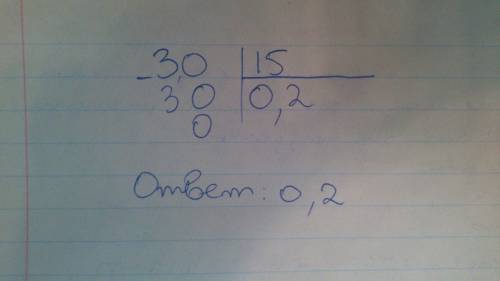 -3,0 | 15
3 0 | 0,2
0
Ответ: 0,2